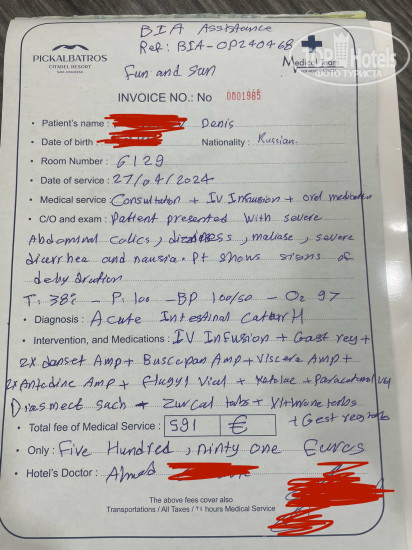 BIA Assistance
Ref: BIA-OP240468
Fun and Sun
PICKALBATROS
CITADEL RESORT
Medical Team
TopHotels
INVOICE NO.: No 0001985
• Patient's name : Denis
• Date of birth Nationality : Russian.
• Room Number : 6129
• Date of service : 27/04/2024
• Medical service : Consultation + IV Infusion + oral medication
• C/O and exam : Patient presented with severe
Abdominal colics, dizziness, malaise, severe
diarrhea and nausea. Pt shows signs of
dehydration
T: 38c - P: 100 - BP 100/60 - O2 97
• Diagnosis : Acute Intestinal CatarrH
• Intervention, and Medications : IV Infusion + Gast reg +
2x danset Amp + Buscopan Amp + Viscera Amp +
2x Antodine Amp + Flagyl Vial + Ketolac + Paracetamol Vial
Diosmect sach + Zurcal tabs + Xithrone tabs
• Total fee of Medical Service : 591 € + Gast reg tabs
• Only : Five Hundred, ninty one Euros
• Hotel's Doctor : Ahmed
The above fees cover also
Transportations / All Taxes / ٢٤ hours Medical Service